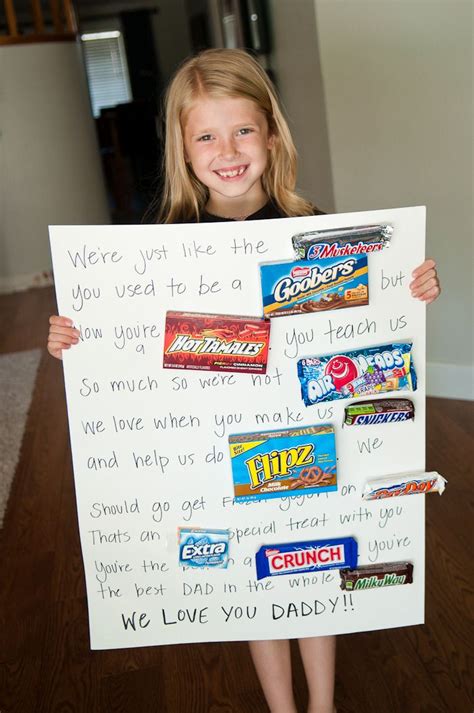 We're just like the 3 Musketeers
you used to be a Nestlé Goobers but
now you're a Hot Tamales you teach us
FIERCE CINNAMON
So much so we're not Airheads
we love when you make us Snickers
and help us do Flipz We
Milk Chocolate
Should go get Frozen Yogurt on PayDay
Thats an Extra special treat with you
You're the Nestlé Crunch you're
the best DAD in the whole MilkyWay
WE LOVE YOU DADDY!!